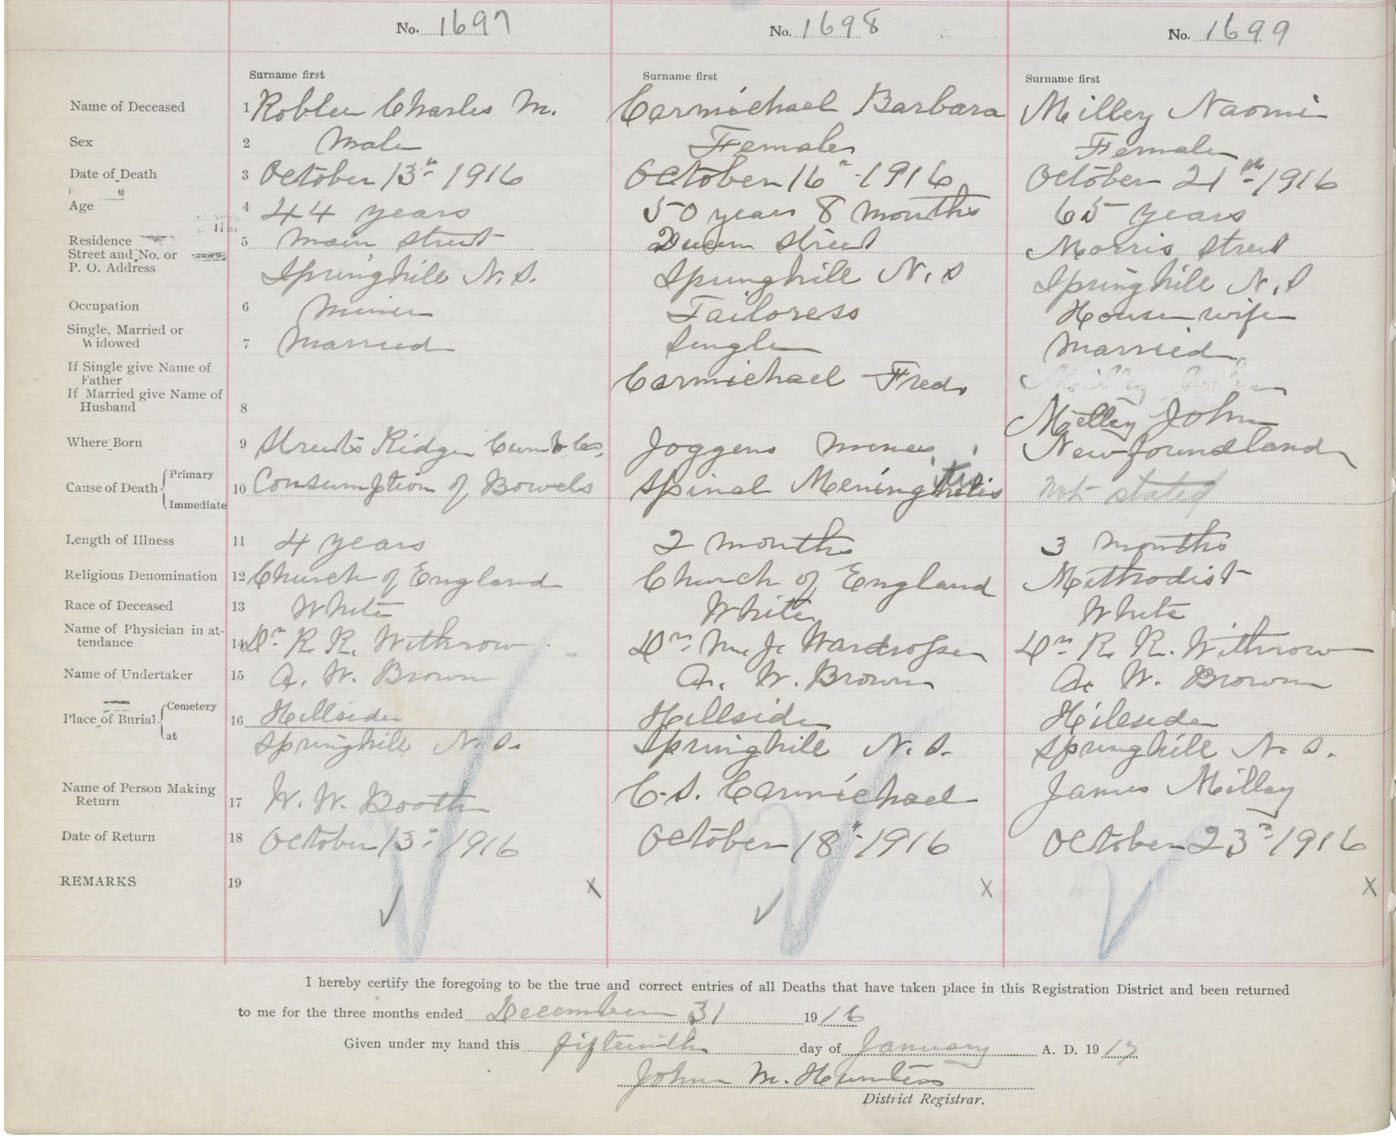 No. 1697 No. 1698 No. 1699
Surname first Surname first Surname first
Name of Deceased 1 Roblee Charles M. Carmichael Barbara Milley Naomi
Sex 2 Male Female Female
Date of Death 3 October 13th 1916 October 16th 1916 October 21st 1916
Age 4 44 years 50 years 8 months 65 years
Residence 5 Main Street Queen Street Morris Street
Street and No. or
P. O. Address Springhill N.S. Springhill N.S Springhill N.S
Occupation 6 Miner Tailoress House wife
Single, Married or
Widowed 7 Married Single Married
If Single give Name of
Father Carmichael Fred
If Married give Name of
Husband 8 Milley John
Where Born 9 Streets Ridge Cumb Co. Joggens Mines Newfoundland
Cause of Death Primary
10 Consumption of Bowels Spinal Meningitis Not stated
Immediate
Length of Illness 11 4 years 2 months 3 months
Religious Denomination 12 Church of England Church of England Methodist
Race of Deceased 13 White White White
Name of Physician in at-
tendance 14 Dr R. R. Withrow Dr M. J. Wardrope Dr R. R. Withrow
Name of Undertaker 15 A. W. Brown A. W. Brown A. W. Brown
Place of Burial Cemetery 16 Hillside Hillside Hillside
at Springhill N.S. Springhill N.S. Springhill N.S.
Name of Person Making
Return 17 W. W. Booth C.S. Carmichael James Milley
Date of Return 18 October 13th 1916 October 18th 1916 October 23rd 1916
REMARKS 19 X X X
I hereby certify the foregoing to be the true and correct entries of all Deaths that have taken place in this Registration District and been returned
to me for the three months ended December 31 1916
Given under my hand this fifteenth day of January A. D. 1917
John M. Hunter
District Registrar.